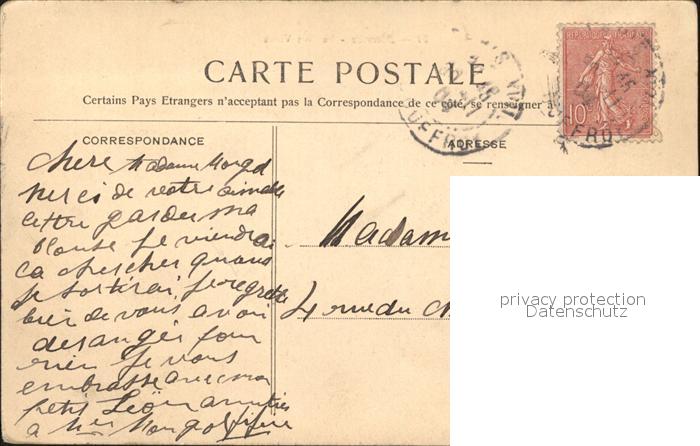 CARTE POSTALE
Certains Pays Etrangers n'acceptent pas la Correspondance de ce côté, se renseigner à
CORRESPONDANCE
ADRESSE
REPUBLIQUE FRANÇAISE
10
chere Madame
merci de votre aimable
lettre garder ma
blouse je viendrai
la chercher quand
je sortirai, je regrette
bien de vous avoir
déranger pour
rien je vous
embrasse avec mon
petit Léon amitiés
a Mer
Madam
4 rue du
privacy protection
Datenschutz